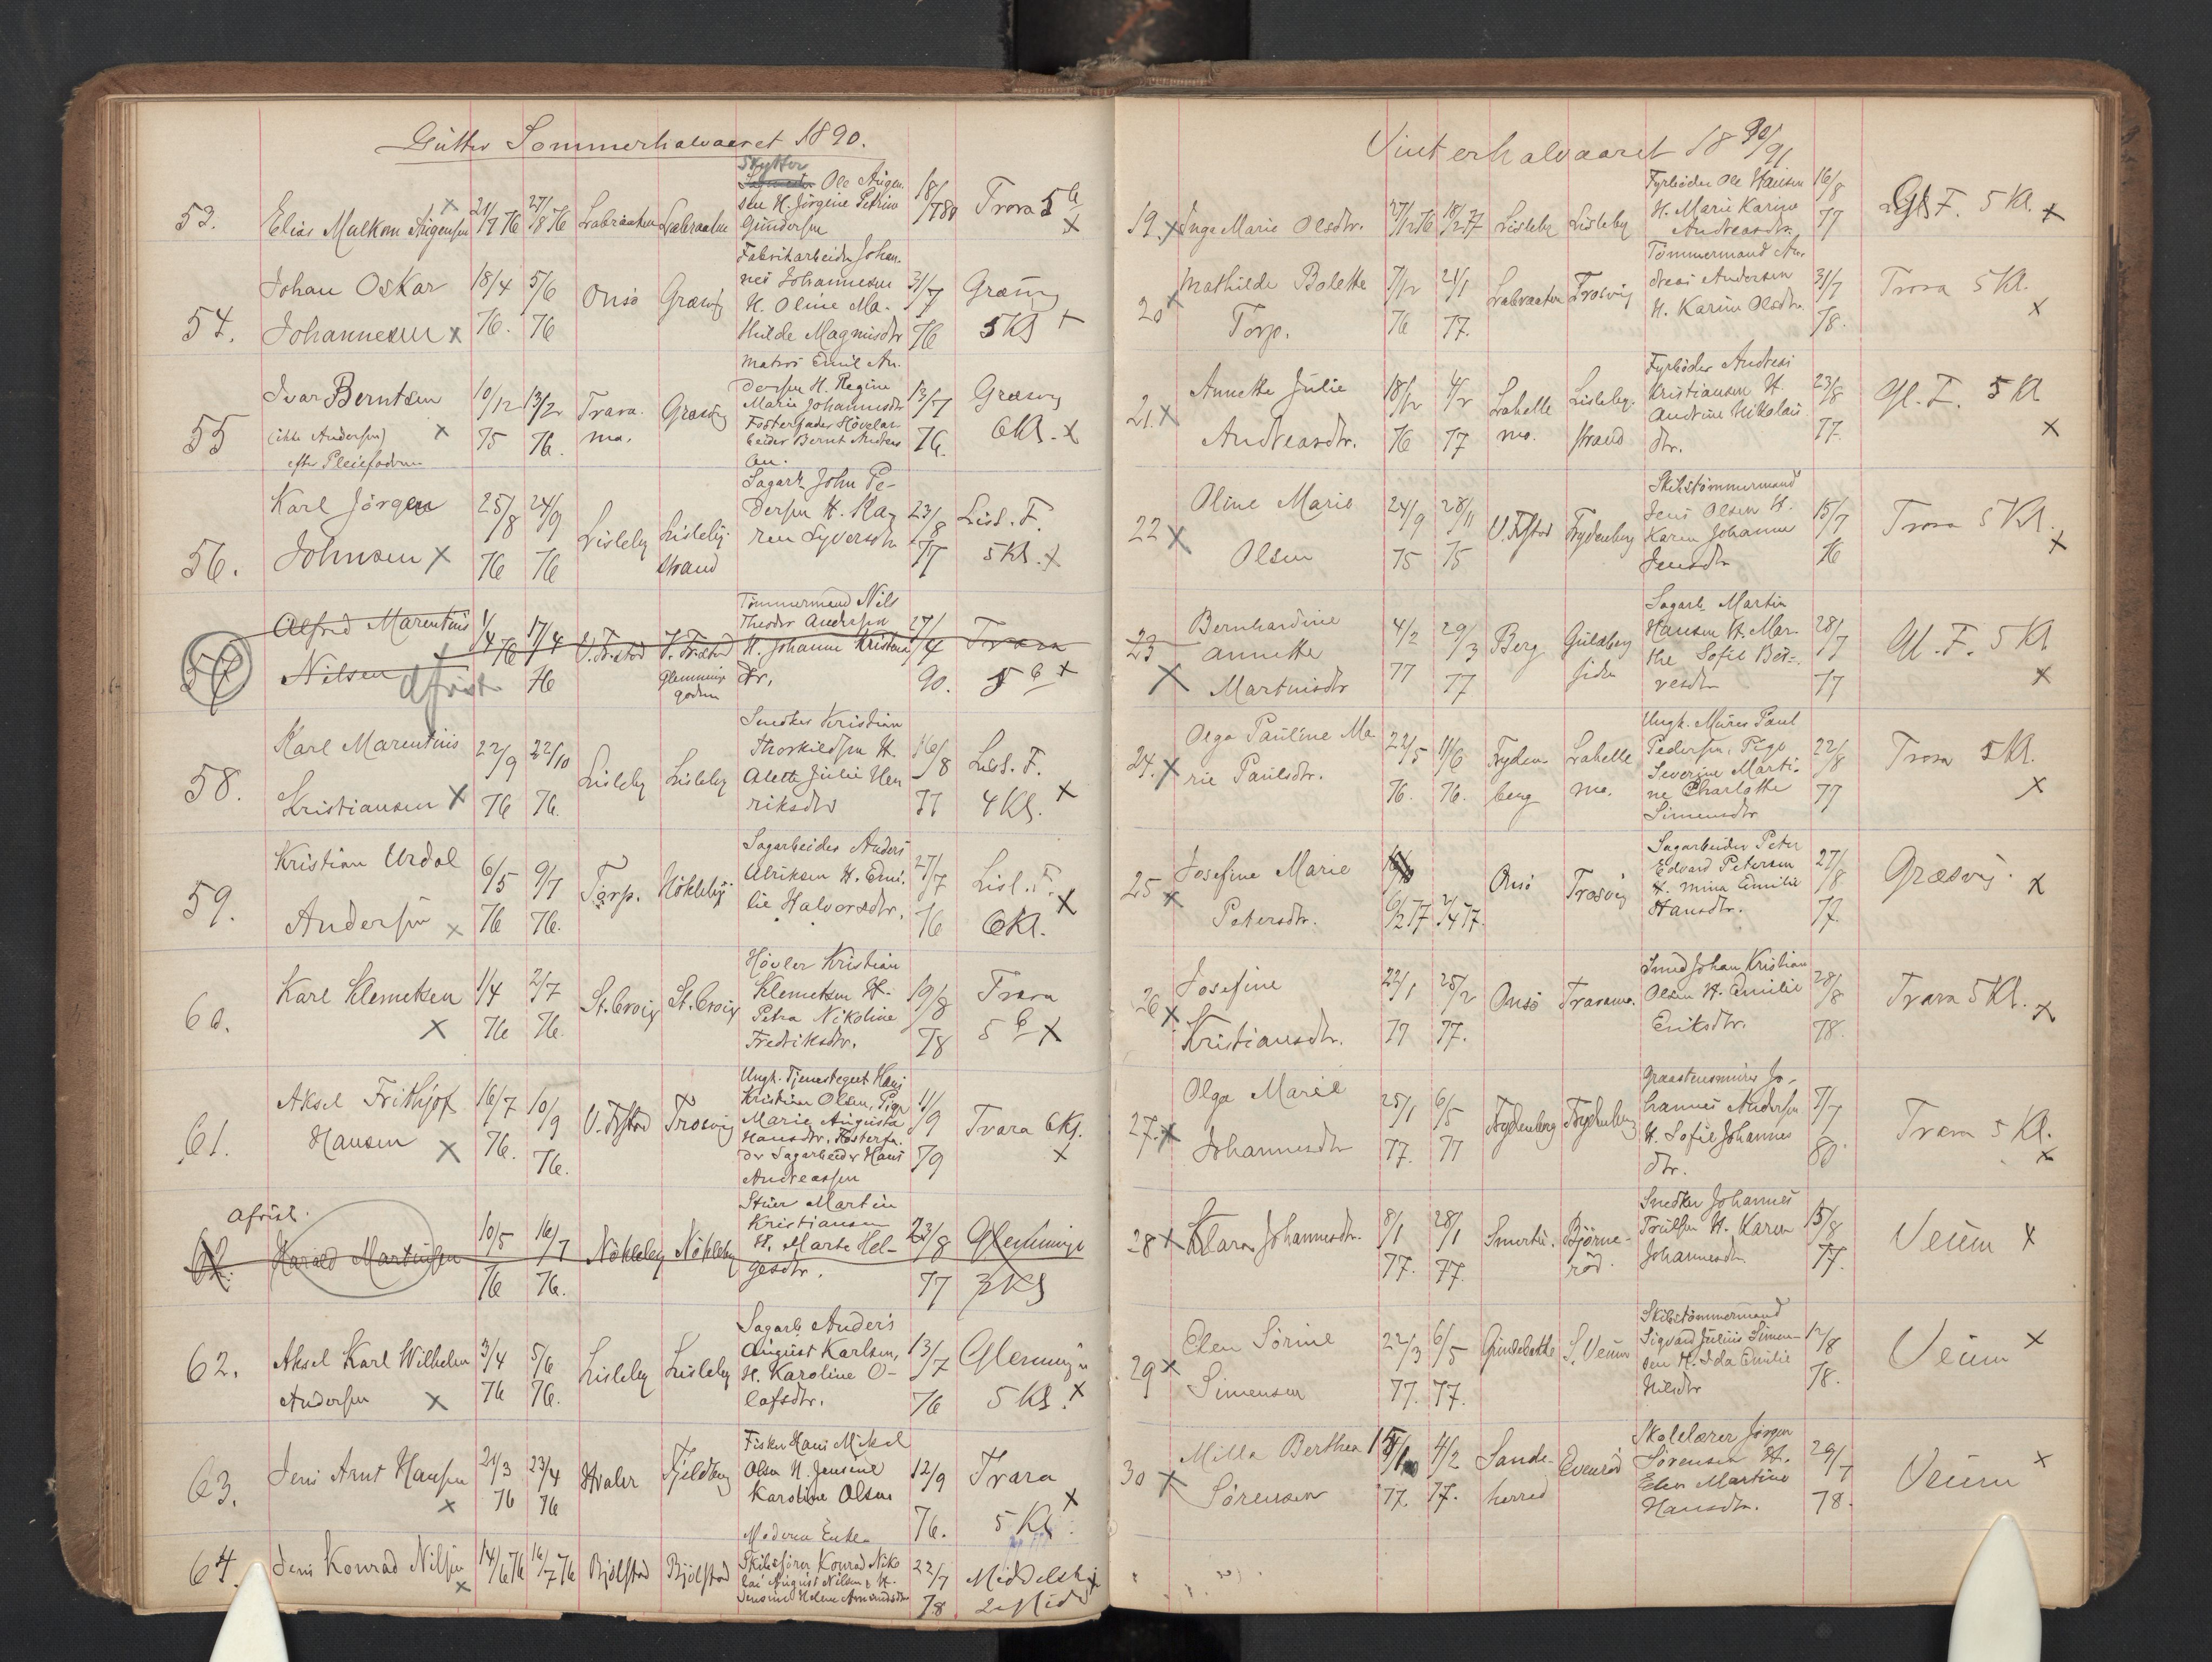 Gutter Sommerhalvaaret 1890.
53. Elias Malkom Aügensen x 21/7 76 27/8 76 Labraaten Labraaten
Skytter
Ole Aügen-
sen H. Jörgine Petrine
Gündersen
18/7 80 Trara 5 x
54. Johan Oskar Johannesen x 18/4 76. 5/6 76 Onsö Græsvig
Fabrikarbeider Johan-
nes Johannesen
H. Oline Ma-
thilde Magnusdtr
31/7 76 Græsvig 5 Kl x
55 Ivar Berntsen (ikke Andersen) efter Pleiefaderen x 10/12 75 13/2 76. Trara- mo. Græsvig
Matros Emil An-
dersen H. Regine
Marie Johannesdtr
Fosterfader Høvelar-
beider Bernt Andreas-
sen.
13/7 76. Græsvig 6 Kl. x
56. Karl Jörgen Johnsen x 25/8 76 24/9 76 Lisleby Lisleby strand
Sagarb. John Pe-
dersen H. Ka-
ren Syversdtr
23/8 77 Lisl. F. 5 Kl. x
57 Alfred Marentius Nilsen afreist 1/4 76 17/4 76 V. Fr.stad V. Fr.stad Glemminge- gaden
Tømmermand Nils
Theodor Andersen
H. Johanne Kristens
dtr.
27/4 90. Trara 5 x
58. Karl Marentius Kristiansen x 22/9 76 22/10 76. Lisleby Lisleby
Snedker Kristian
Thorkildsen H.
Alette Julie Hen
riksdtr
16/8 77 Lisl. F. 4 Kl. x
59. Kristian Urdal Andersen x 6/5 76 9/7 76. Torp. Nökleby
Sagarbeider Anders
Ulriksen H. Emi-
lie Halvorsdtr.
27/7 76 Lisl. F. 6 Kl. x
60. Karl Klemetsen x 1/4 76 2/7 76. St. Croix St. Croix
Hövler Kristian
Klemetsen H.
Petra Nikoline
Fredriksdtr.
19/8 78 Trara 5 x
61. Aksel Frithjof Hansen x 16/7 76. 10/9 76. V. Fr.stad Trosvig
Ungk. Tjenestegut Hans
Kristian Olsen, Pige
Marie Augusta
Hansdtr, Fosterfa-
der Sagarbeider Hans
Andreassen
11/9 79 Trara 6 Kl. x
afreist.
62. Harald Martinsen 10/5 76 16/7 76. Nökleby Nökleby
Stuer Martin
Kristiansen
H. Marte Hel-
gesdtr.
23/8 77 Glemminge 3 Kl
62. Aksel Karl Wilhelm Andersen x 3/4 76 5/6 76. Lisleby Lisleby
Sagarb. Anders
August Karlsen,
H. Karoline O-
lafsdtr.
13/7 76 Glemminge 5 Kl. x
63. Jens Arnt Hansen x 21/3 76 23/4 76 Hvaler Fjeldberg
Fisker Hans Mikal
Olsen H. Jensine
Karoline Olsen
12/9 76. Trara 5 Kl. x
64. Jens Konrad Nilsen x 14/6 76 16/7 76 Bjölstad Bjölstad
Moderen Enke.
Skibsförer Konrad Niko
lai August Nilsen & H.
Jensine Helene Amundsdtr
22/7 78 Middelsk.
Vinterhalvaaret 1890/91
19. x Inga Marie Olsdtr. 27/12 76 18/2 77 Lisleby Lisleby
Fyrböder Ole Hansen
H. Marie Karine
Andreasdtr.
16/8 77 Gl. F. 5 Kl. x
20 x Mathilde Bolette Torp. 7/12 76 21/1 77. Labraaten Trosvig
Tömmermand An-
dreas Andersen
H. Karine Olsdtr.
31/7 78. Trara 5 Kl. x
21. x Annette Julie Andreasdtr. 18/12 76 4/2 77 Labelle mo. Lisleby- strand
Fyrböder Andreas
Kristiansen H.
Andrine Nikolai
dtr.
23/8 77. Gl. F. 5 Kl x
22 x Oline Marie Olsen 24/9 75 28/11 75 V. Frstad Frydenberg
Skibstömmermand
Jens Olsen H.
Karen Johanne
Jensdtr
15/7 76 Trara 5 Kl. x
23 x Bernhardine Annette Martinsdtr 4/2 77 29/3 77 Berg Guldberg siden
Sagarb. Martin
Hansen H. Mar-
the Sofie Bör-
resdtr
28/7 77 Gl. F. 5 Kl x
24. x Olga Pauline Ma rie Paulsdtr. 22/5 76. 11/6 76. Fryden- berg Labelle mo.
Ungk. Murer Paul
Pedersen, Pige
Severine Marti-
ne Charlotte
Simensdtr
22/8 77 Trara 5 Kl. x
25 x Josefine Marie Petersdtr. 6/2 77 2/4 77. Onsö Trosvig
Sagarbeider Peter
Edvard Petersen
H. Mina Emilie
Hansdtr.
27/8 77. Græsvig. x
26 x Josefine Kristiansdtr. 22/1 77 25/2 77. Onsö Traramo.
Smed Johan Kristian
Olsen H. Emilie
Eriksdtr.
28/8 78. Trara 5 Kl. x
27. x Olga Marie Johannesdtr 25/1 77. 6/5 77 Frydenberg Frydenberg
Graastensmurer Jo-
hannes Andersen
H. Sofie Johannes
dtr.
7/7 80. Trara 5 Kl. x
28 x Klara Johannesdtr. 8/1 77. 28/1 77. Smertu. Björne- röd.
Snedker Johannes
Truelsen H. Karen
Johannesdtr.
15/8 77. Veum x
29 x Elen Sörine Simensen 22/3 77. 6/5 77. Gundeløkke S. Veum
Skibstömmermand
Sigvard Julius Simen-
sen H. Ida Emilie
Nilsdtr
12/8 78. Veum x
30 x Milla Berthea Sörensen 77. 4/2 77. Sande- herred Evenröd
Skolelærer Jörgen
Sörensen H.
Elen Martine
Hansdtr.
29/7 78. Veum x